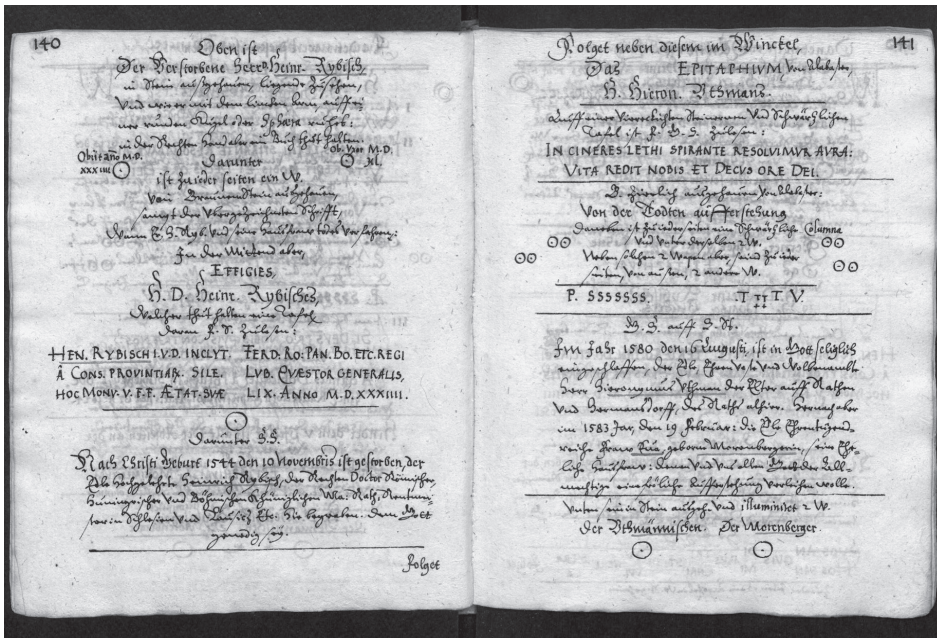 140
Oben ist
Der Verstorbene Herr Heinr. Rybisch,
in Stein außgehauen, ligende zusehen,
Und wie er mit dem lincken Arm, auff ei
ner runden Kugel oder Sphæra ruhet:
in der Rechten Hand aber ein Buch thut halten.
Obiit año M.D. XXXIIII
Darunter
Ob. Uxor M.D. XL
ist zu jeder seiten ein W.
von Braunem Stein außgehauen,
sampt der Schrifft,
In der Mitten aber,
EFFIGIES,
H. D. Heinr. Rybisches,
Welcher thut halten eine Tafel,
daran F. S. zulesen:
HEN. RYBISCH I.V.D. INCLYT. FERD: RO: PAN. BO. ETC. REGI
Â CONS. PROVINTIAR. SILE. LVB. QVÆSTOR GENERALIS,
HOC MONV. V. F. F. ÆTAT. SVÆ LIX. ANNO M.D.XXXIIII.
Darunter F. S.
Nach Christi Geburt 1544 den 10 Novembris ist gestorben, der
Edle Hochgelehrte Heinrich Rybisch, der Rechten Doctor Römischer,
Hungrischer und Böhmischer Königlichen Rath, Rentmei
ster in Schlesien und Lausitz Etc: hie begraben. dem Gott
genedig sey.
Folget
141
Folget neben diesem im Winckel,
Das EPITAPHIUM von Alabaster,
H. Hieron. Vthmans.
Auff einer Viereckichten Steinernen Und Schwärtzlichen
Tafel ist F. G. S. zulesen:
IN CINERES LETHI SPIRANTE RESOLVIMVR AVRA:
VITA REDIT NOBIS ET DECVS ORE DEI.
D. zierlich außgehauen von Alabaster:
Von der Todten aufferstehung
Daneben ist zu jeder seiten eine Schwärtzliche Columna
Und unter derselben 2 W.
Neben solchen 2 Wapen aber, seind zu jeder
seiten, von aussen, 2 andere W.
P. SSSSSSS. .T II T V.
auff
Im Jahr 1580 den 16 Augusti, ist in Gott seliglich
eingeschlaffen, der Edl. Ehrenveste und Wolbenambte
Herr Hieronymus Vthman der Elter auff Rathen
Und Hermansdorff, des Raths alhier. Hernach aber
im 1583 Jar, den 19 Februar: die Edl. Ehrentugend-
reiche Fraw Eua, geborne Morenbergerin, sein Ehe-
liche Hausfraw: denen und uns allen Gott der All-
mechtige eine fröliche Aufferstehung verleihen wolle.
Unten sein in Stein außgeh. und illuminiret 2 W.
Der Vthmännischen. Der Morenberger.